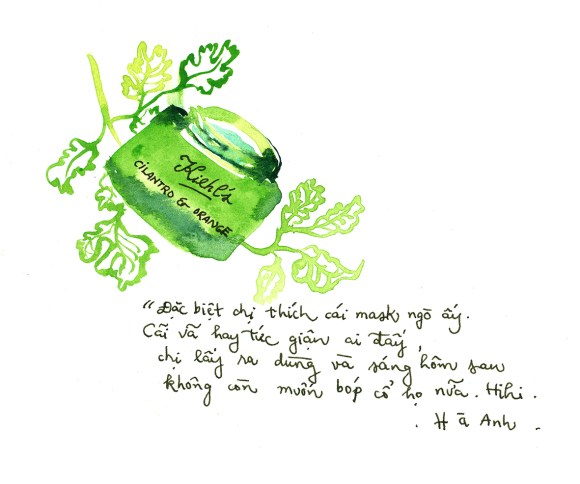 Kiehl's
CILANTRO & ORANGE
"Đặc biệt chị thích cái mask ngò ấy.
Cãi vã hay tức giận ai đấy,
chị lấy ra dùng và sáng hôm sau
không còn muốn bóp cổ họ nữa. Hihi.
Hà Anh.